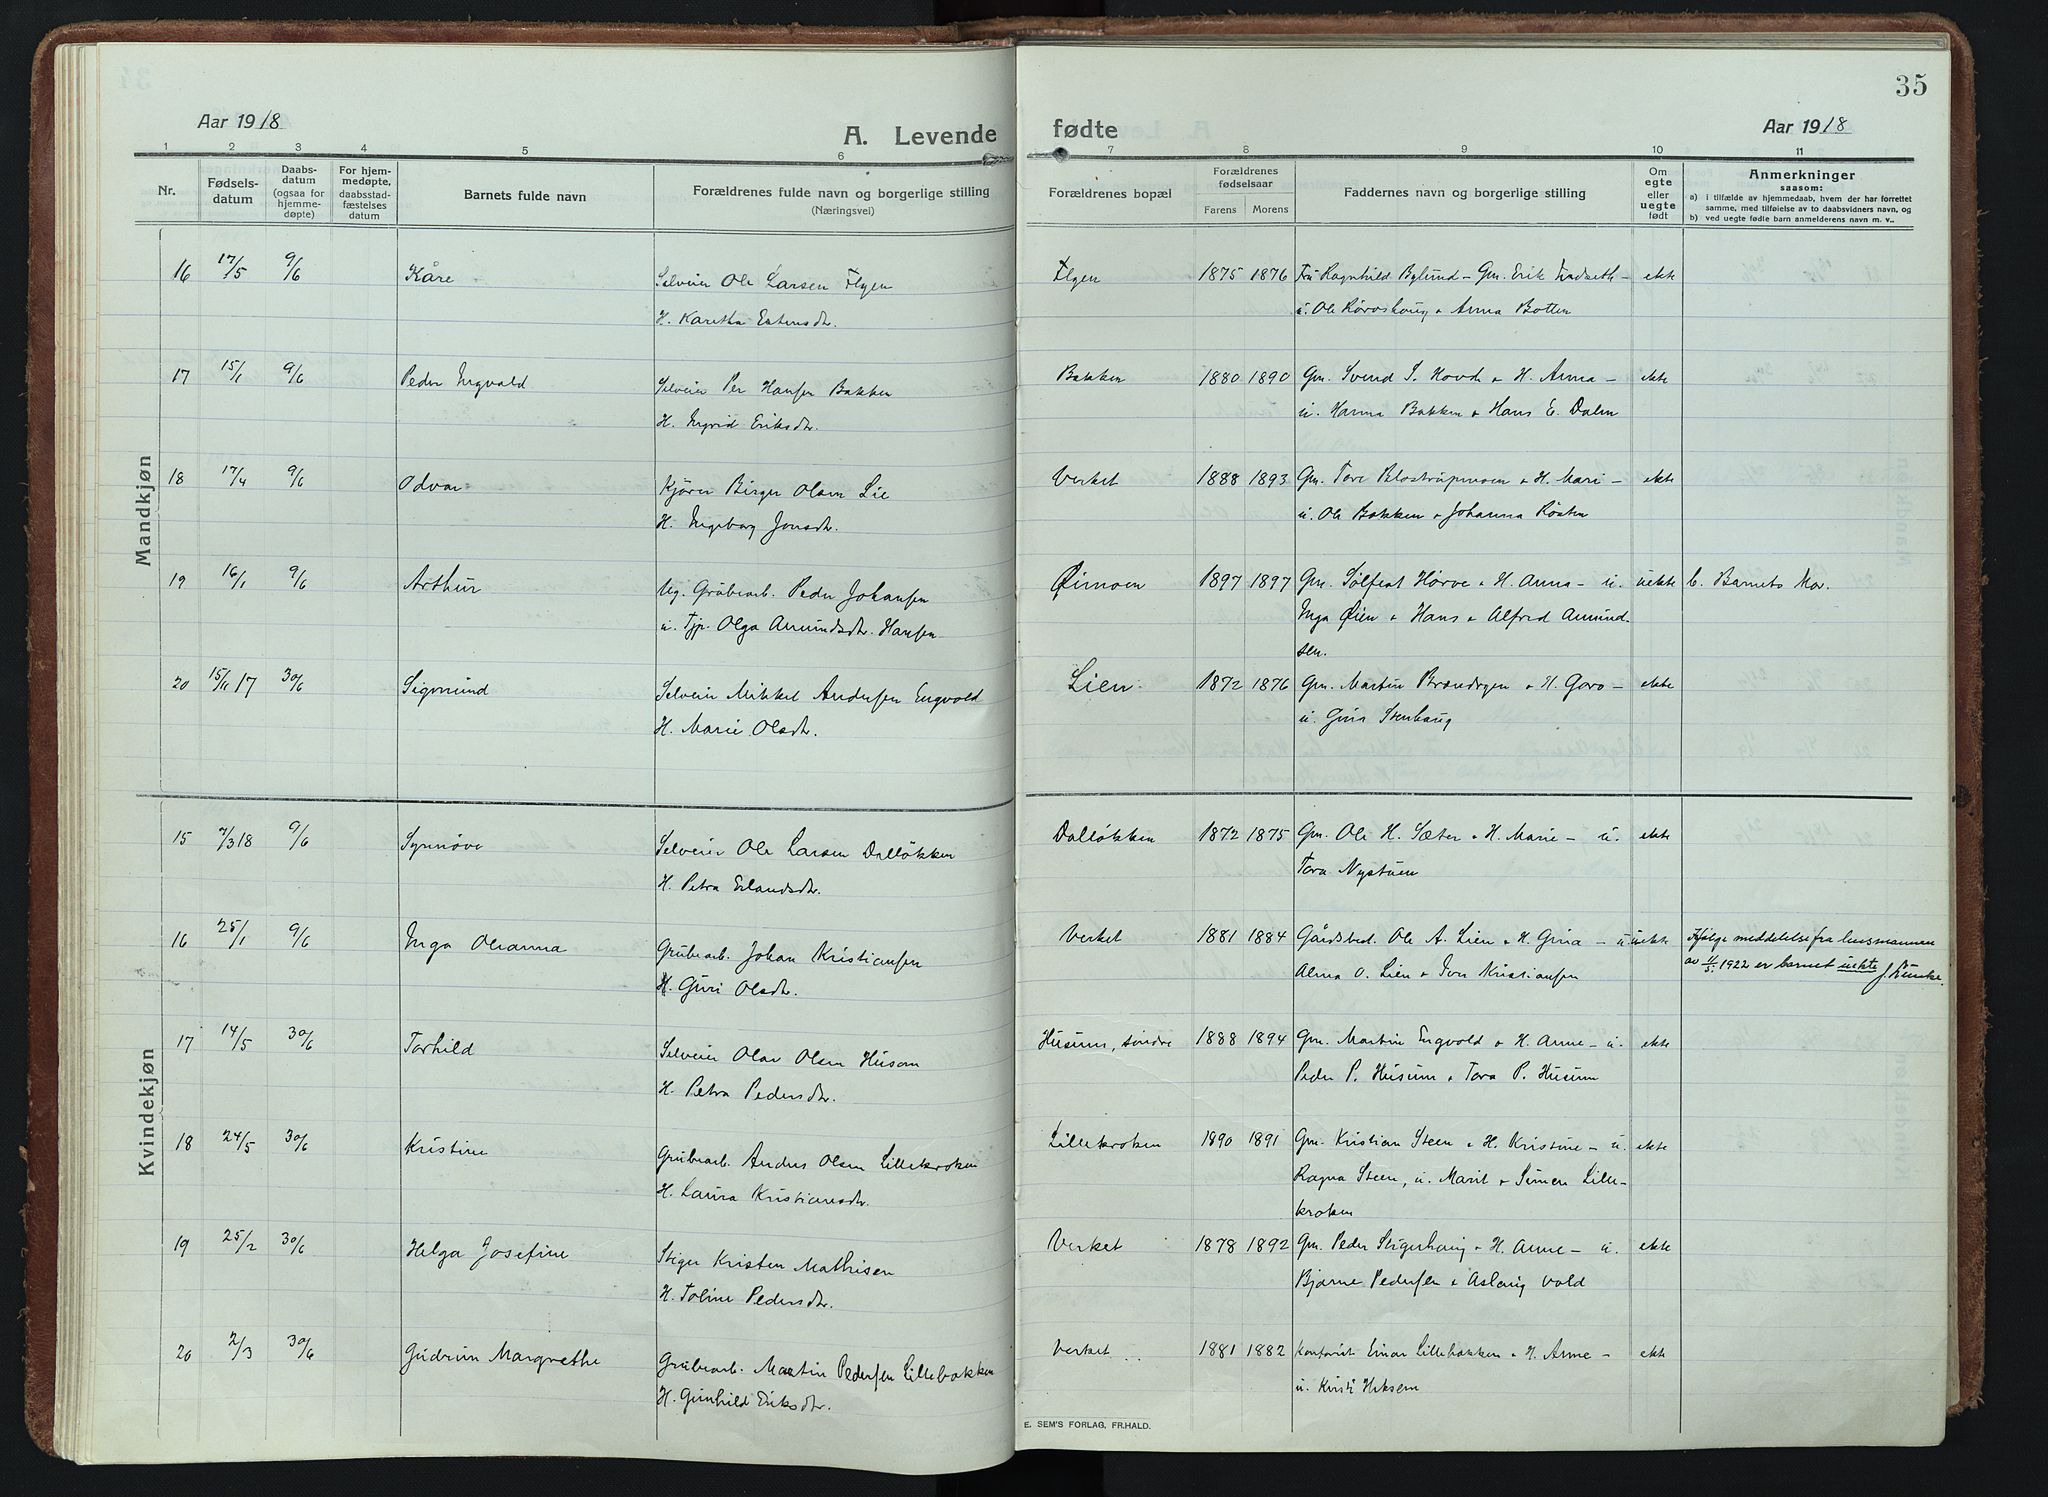 35
Aar 1918
A. Levende
fødte
Aar 1918
1 2 3 4 5 6 7 8 9 10 11
Nr.
Fødsels-
datum
Daabs-
datum
(ogsaa for
hjemme-
døpte)
For hjem-
medøpte,
daabsstad-
fæstelses
datum
Barnets fulde navn
Forældrenes fulde navn og borgerlige stilling
(Næringsvei)
Forældrenes bopæl
Forældrenes
fødselsaar
Farens Morens
Faddernes navn og borgerlige stilling
Om
egte
eller
uegte
født
Anmerkninger
saasom:
a) i tilfælde av hjemmedaab, hvem der har forrettet
samme, med tilføielse av to daabsvidners navn, og
b) ved uegte fødte barn anmelderens navn m. v..
Mandkjøn
16 17/5 9/6 Kåre Selveier Ole Larsen Flyen Flyen 1875 1876 Fru Ragnhild Bylund – Gm. Erik – ekte
H. Karetha Estensdtr. u. Ole Rørvshaug & Anna Botten
17 15/1 9/6 Peder Ingvald Selveier Per Hansen Bakken Bakken 1880 1890 Gm. Svend S. Hovde & H. Anna – ekte
H. Ingrid Eriksdtr. u. Hanna Bakken & Hans E. Dalen
18 17/4 9/6 Odvar Kjører Birger Olsen Lie Verket 1888 1893 Gm. Tore Blostrupmoen & H. Mari – ekte
H. Ingeborg Jonsdtr. u. Ole Bakken & Johanna Rösten
19 16/1 9/6 Arthur Ug. Grubearb. Peder Johansen Øimoen 1897 1897 Gm. Sølfest Hørve & H. Anna – u. uekte b. Barnets Mor.
u. Tjp. Olga Amundsdtr. Hansen Inga Øien & Hans & Alfred Amund-
sen.
20 15/11 17 30/6 Sigmund Selveier Mikkel Andersen Engvold Lien. 1872 1876 Gm. Martin Brændryen & H. Goro – ekte
H. Marie Olsdtr. u. Gina Stenhaug
Kvindekjøn
15 7/3 18 9/6 Synnøve Selveier Ole Larsen Dalløkken Dalløkken 1872 1875 Gm. Ole H. Sæter & H. Marie – u. ekte
H. Petra Erlandsdtr. Tora Nystuen
16 25/1 9/6 Inga Oleanna Grubearb. Johan Kristiansen Verket 1881 1884 Gårdsbed. Ole A. Lien & H. Gina – u uekte Ifølge meddelelse fra lensmannen
H. Guri Olsdtr. Alma O. Lien & Iver Kristiansen av 11/5 1922 er barnet uekte
17 14/5 30/6 Torhild Selveier Olav Olsen Husom Husum, søndre 1888 1894 Gm. Martin Engvold & H. Anne – u. ekte
H. Petra Pedersdtr. Peder P. Husum & Tora P. Husum
18 24/5 30/6 Kristine Grubearb. Anders Olsen Lillekroken Lillekroken 1890 1891 Gm. Kristian Steen & H. Kristine – u. ekte
H. Laura Kristiansdtr. Ragna Steen, u. Marit & Simen Lille-
kroken
19 25/2 30/6 Helga Josefine Stiger Kristen Mathisen Verket 1878 1892 Gm. Peder Stigerhaug & H. Anne – u. ekte
H. Toline Pedersdtr. Bjarne Pedersen & Aslaug Vold
20 2/3 30/6 Gudrun Margrethe Grubearb. Martin Pedersen Lillebakken Verket .. 1881 1882 Kontorist Einar Lillebakken & H. Anne – ekte
H. Gunhild Eriksdtr. u. Kristi
E. SEM'S FORLAG, FR.HALD.